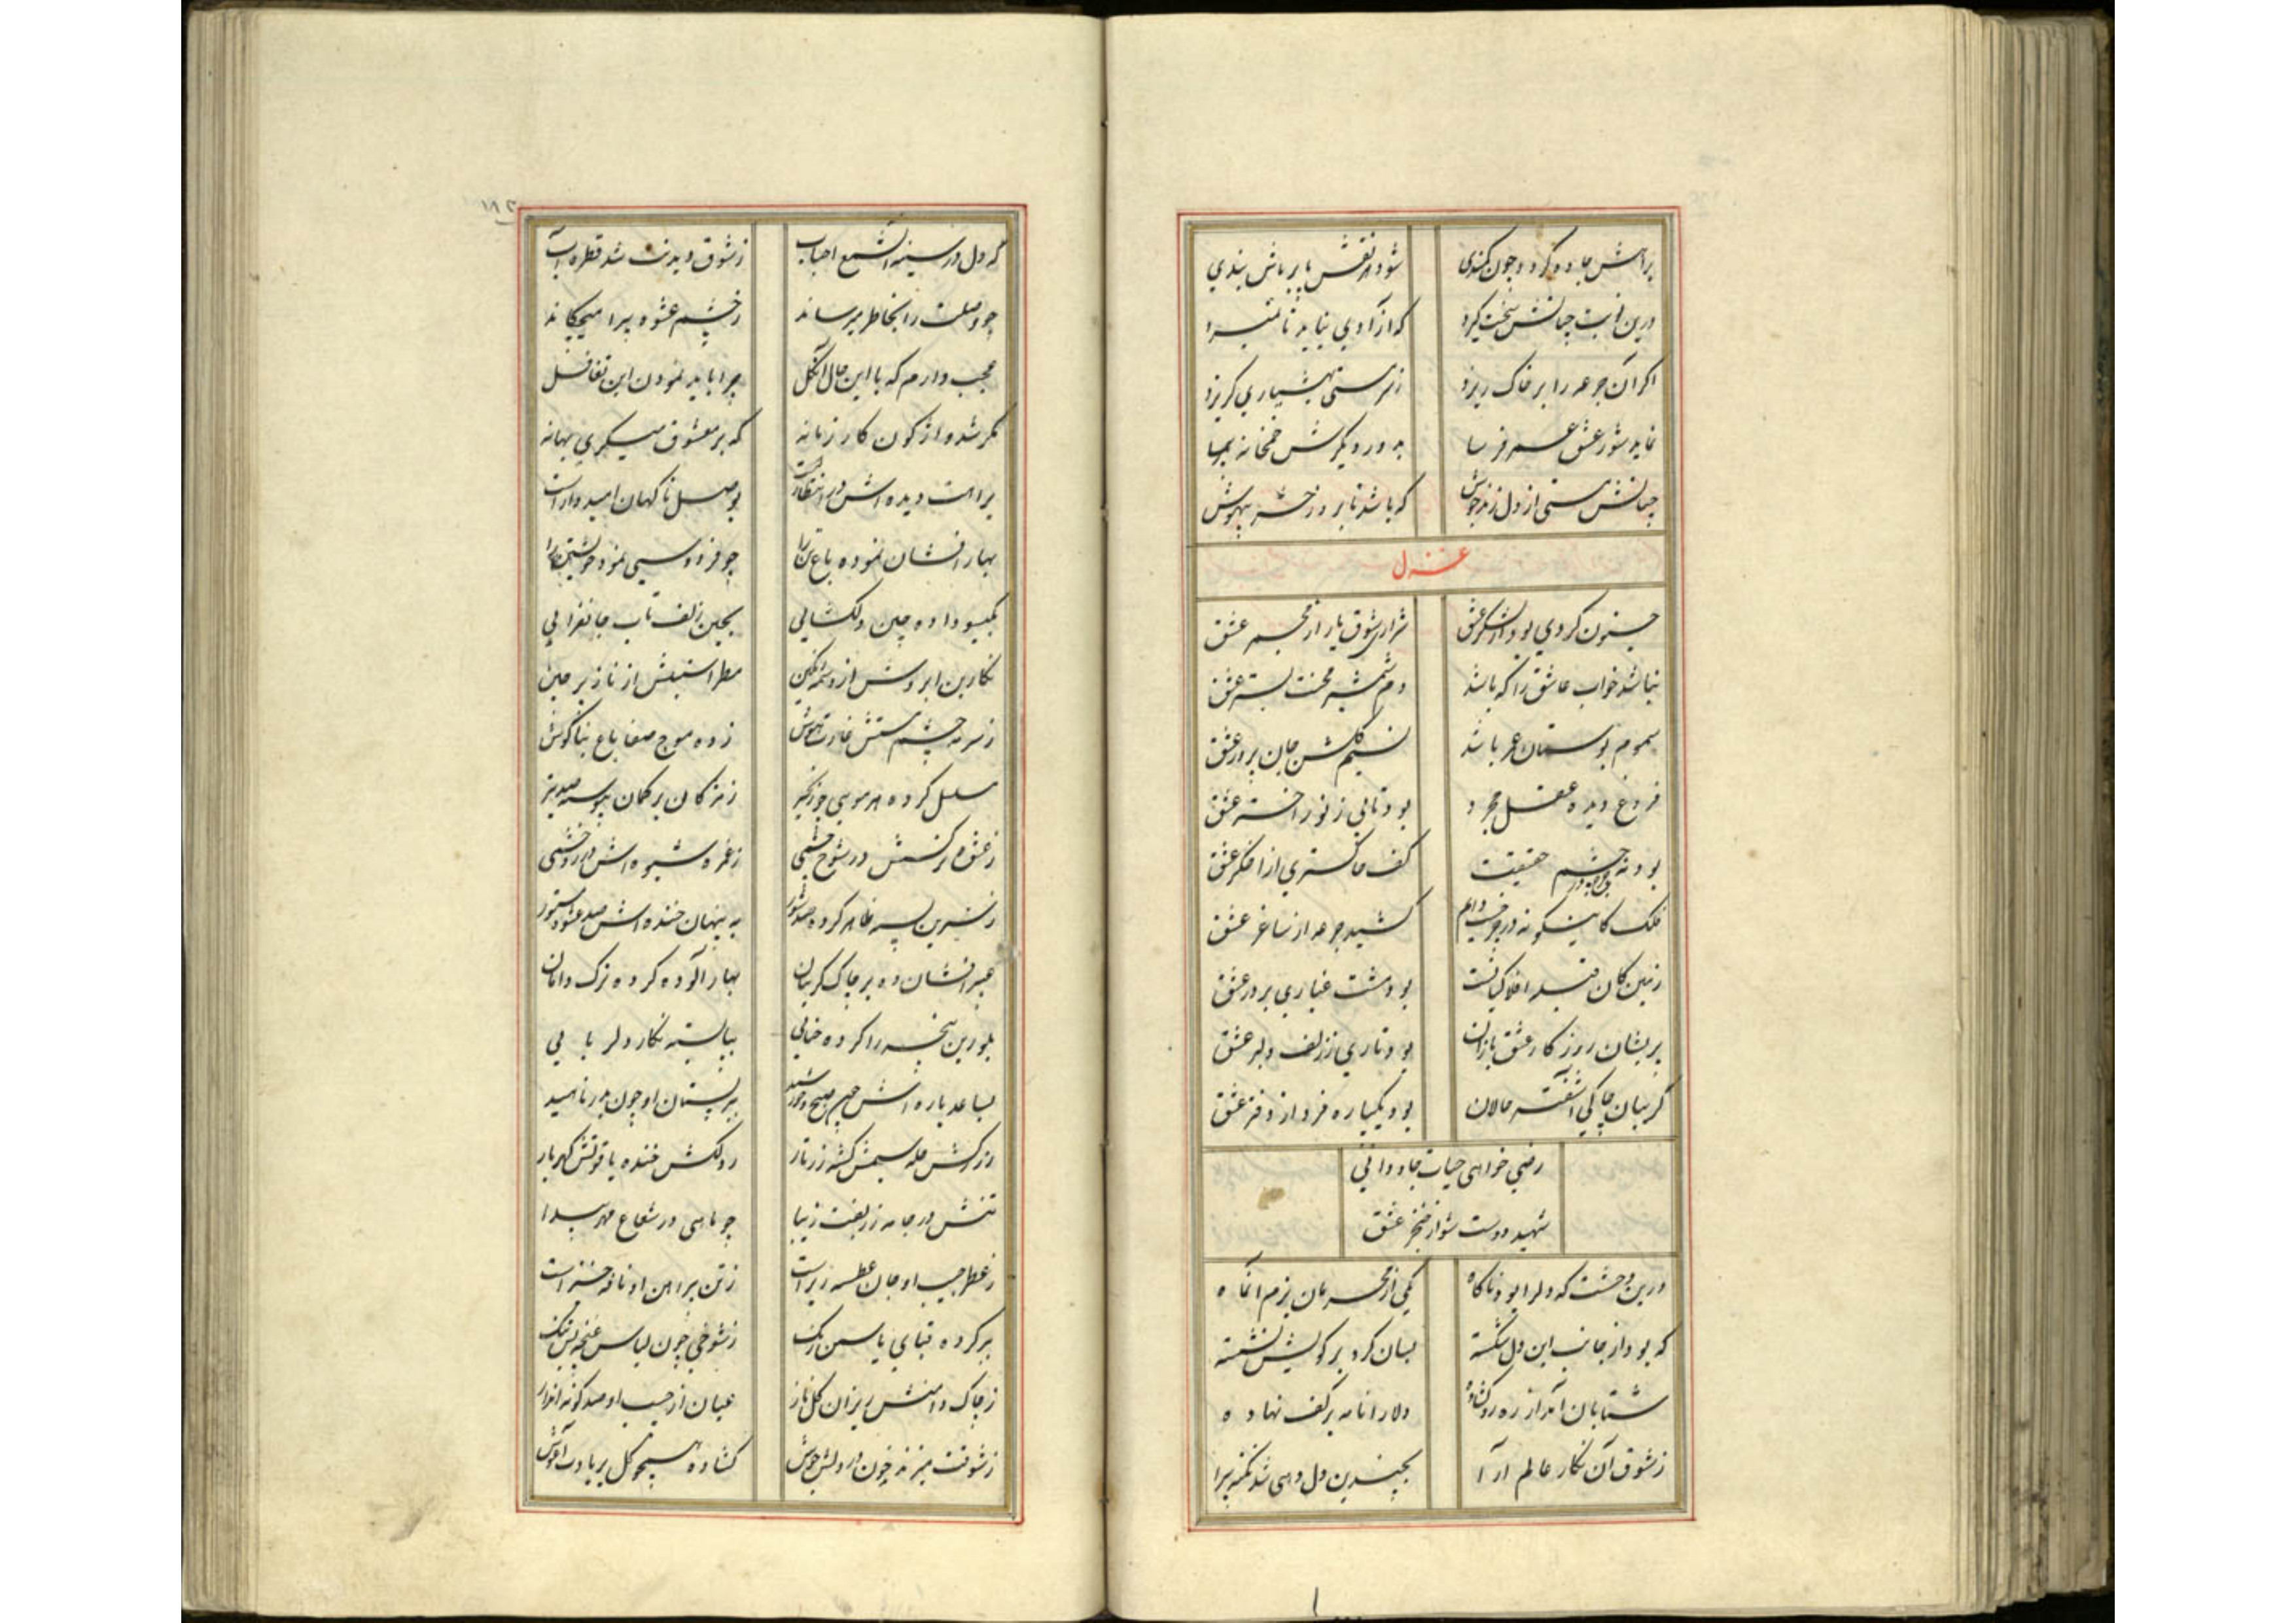 براهش جاده گردد چون کمندی شود هر نقش پا بر پاش بندی
درین ره پا چنانش سخت گیرد که از آدمی نیاید تا نمیرد
اگر آن جرعه را بر خاک ریزد زمین مستی ز هشیاری گریزد
نماید شور عشق عمر فرسا به دور دیگرش خمخانه پیما
چنانش مستی از دل زند جوش که باشد تا بروز حشر بیهوش
غزل
جنون کردی بود از لشکر عشق شراری شوق یار از مجمر عشق
نباشد خواب عاشق را که باشد دم شمشیر محنت بستر عشق
سموم بوستان عمر باشد نسیم گلشن جان پرور عشق
فروغ دیده عقل مجرد بود تابی ز نور اختر عشق
بود نه چشم حقیقت کف خاکستری از اخگر عشق
فلک کاینگونه در چرخست دایم کشید جرعه از ساغر عشق
زمین کان قبله افلاکیانست بود مشت غباری بر در عشق
پریشان روزگار عشق بازان بود تاری ز زلف دلبر عشق
گریبان چاکی آشفته حالان بود یکپاره فرد از دفتر عشق
رضی خواهی حیات جاودانی
شهید دوست شو از خنجر عشق
درین وحشت که دلرا بود ناگاه یکی از محرمان بزم آنماه
که بود از جانب این دل شکسته بسان گرد بر کویش نشسته
شتابان آمد از ره رو گشاده دلارا نامه بر کف نهاده
ز شوق آن نگار عالم آرا بچندین دل دهی شد نکته پیرا
که دل در سینه آن شمع احباب ز شوق دیدنت شد قطره آب
چو وصلت را بخاطر میرساند ز چشم عشوه پیرا میچکاند
عجب دارم که با این حال آن گل چرا باید نمودن این تغافل
مگر شد واژگون کار زمانه که بر معشوق میگیری بهانه
براهت دیده اش در انتظارست بوصل ناگهان امیدوارست
بهار افشان نموده باغ تن را چو فردوسی نمود خویشتن را
بگیسو داده چین دلگشایی بچین زلف تاب جانفزایی
نگارین ابروش از وسمه رنگین مطرا سنبلش از ناز پر چین
ز سرمه چشم مستش غارت هوش زده موج صفا باغ بناگوش
مسلسل کرده هر مویی چو زنجیر ز مژگان بر کمان پیوسته صد تیر
ز عشوه نرگسش در شوخ چشمی ز غمزه شیوه اش در زود خشمی
ز شیرین پسته ظاهر کرده صد شور به پنهان خنده اش صد عشوه مستور
عبیر افشانده بر چاک گریبان بهار آلوده کرده ترک دامان
بلورین پنجه را کرده حنایی بپا بسته نگار دلربایی
بساعد یاره اش چون صبح و خورشید ببر پستان او چون بدر و ناهید
ز زرکش حله سیمش گشته زرتار ز دلکش خنده یاقوتش گهربار
تنش در جامه زربفت زیبا چو ماهی در شعاع مهر پیدا
ز عطر جیب او جان عطسه ریزاست ز تن پیراهن او نافه خیزاست
ببر کرده قبای یاسمن رنگ ز شوخی چون لباس غنچه پر تنگ
ز چاک دامنش ریزان گل ناز عیان از جیب او صد گونه انداز
ز شوقت میزند خون در دلش جوش گشاده همچو گل بر یادت آغوش